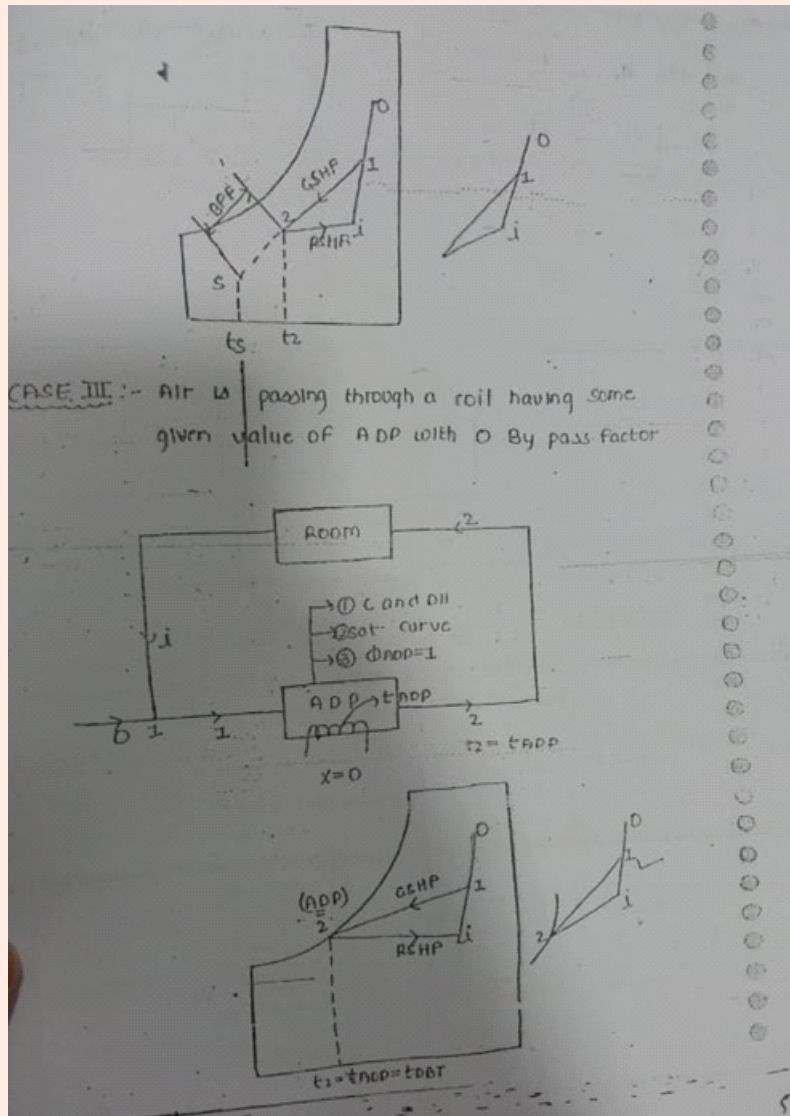 O
1
GSHF
BPF
2
i
RSHF
S
ts
t2
O
1
i
CASE III :- Air is passing through a coil having some
given value of ADP with 0 By pass factor
ROOM
2
i
① C and DH
② sat curve
③ ΦADP=1
ADP
tADP
O
1
1
2
t2 = tADP
X=0
O
1
GSHF
(ADP)
2
i
RSHF
O
1
i
2
t2=tADP=tDBT